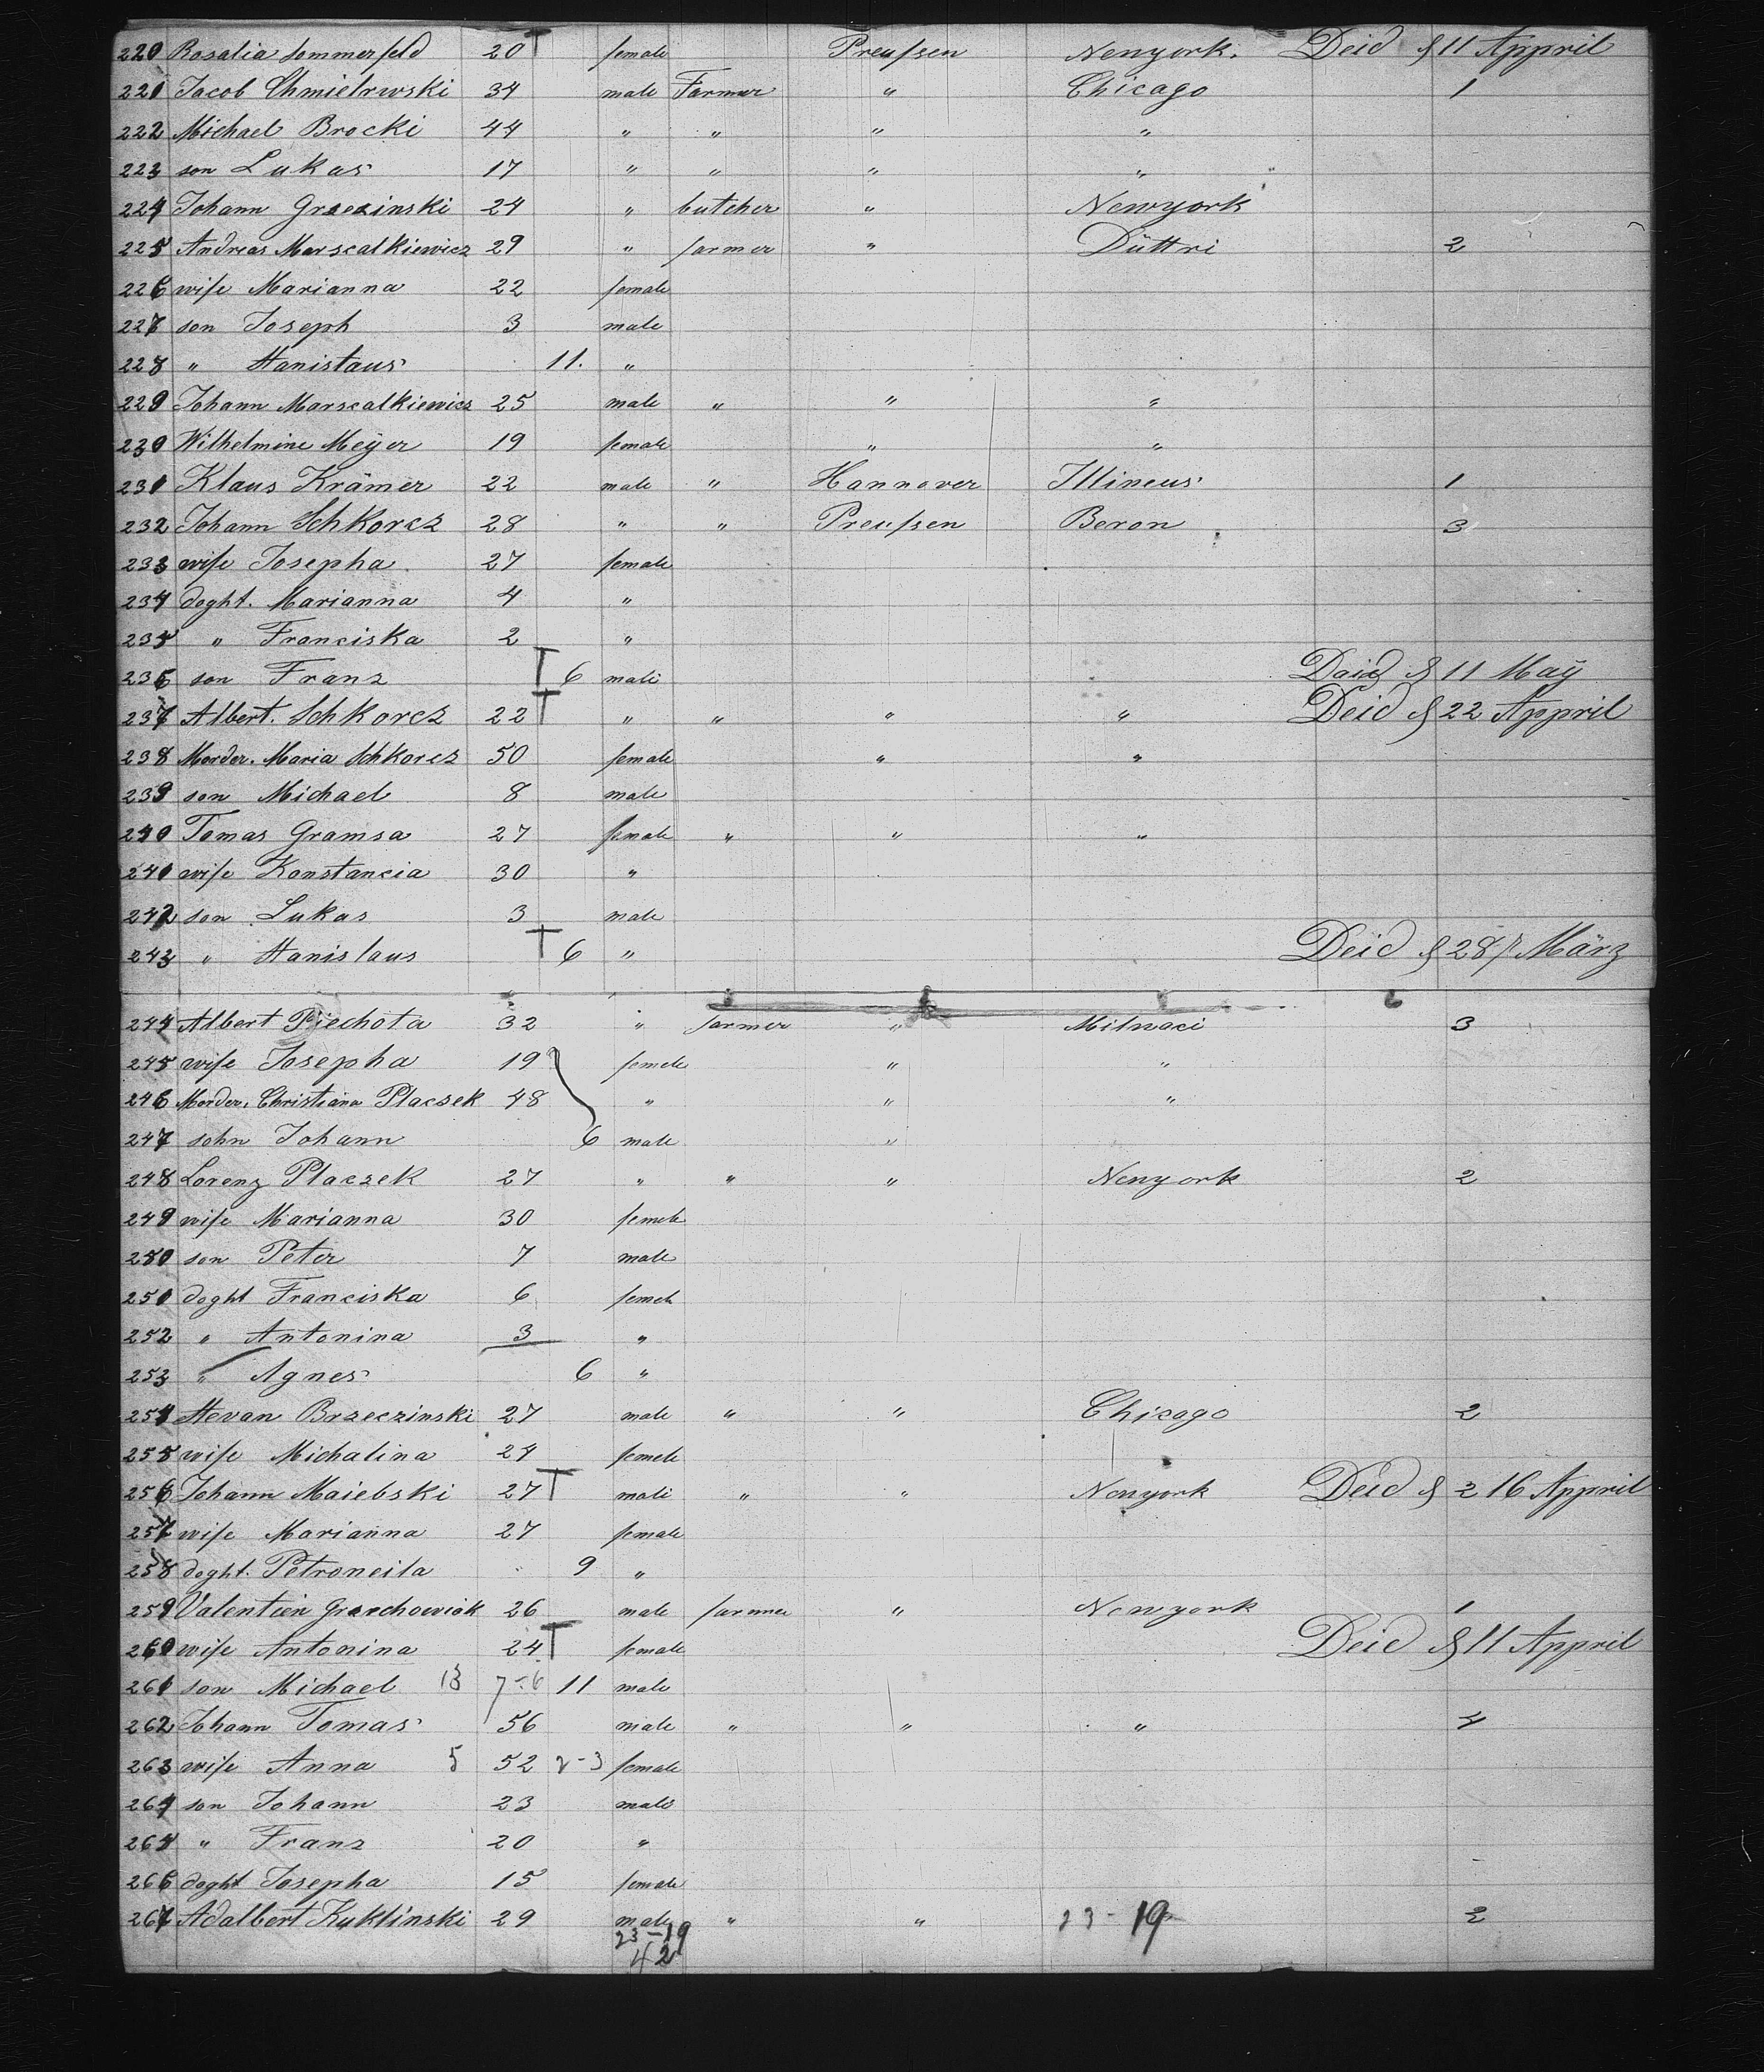 220 Rosalia Sommerfeld 20 female Preußen Newyork. Deid § 11 Appril
221 Jacob Chmielrwski 34 male Farmer " Chicago 1
222 Michael Brocki 44 " " " "
223 son Lukas 17 " " " "
224 Johann Grzezinski 24 " butcher " Newyork
225 Andreas Marscalkiewicz 29 " farmer " Düttri 2
226 wife Marianna 22 female
227 son Joseph 3 male
228 " Stanislaus 11. "
229 Johann Marscalkiewicz 25 male " " "
230 Wilhelmine Meÿer 19 female " "
231 Klaus Krämer 22 male " Hannover Illineus 1
232 Johann Schkorcz 28 " " Preußen Beron 3
233 wife Josepha 27 female
234 doght. Marianna 4 "
235 " Franciska 2 "
236 son Franz 6 male Daid § 11 Maÿ
237 Albert. Schkorcz 22 " " " " Deid § 22 Appril
238 Morder. Maria Schkorcz 50 female " "
239 son Michael 8 male
240 Tomas Gramsa 27 female " " "
241 wife Konstancia 30 "
242 son Lukas 3 male
243 " Stanislaus 6 " Deid § 28/ März
244 Albert Piechota 32 " farmer " Milwaci 3
245 wife Josepha 19 female " "
246 Morder. Christiana Placsek 48 " " "
247 sohn Johann 6 male "
248 Lorenz Placzek 27 " " " Newyork 2
249 wife Marianna 30 female
250 son Peter 7 male
251 doght Franciska 6 female
252 " Antonina 3 "
253 " Agnes 6 "
254 Stevan Brzeczinski 27 male " " Chicago 2
255 wife Michalina 24 female
256 Johann Maiebski 27 male " " Newyork Deid § 2 16 Appril
257 wife Marianna 27 female
258 doght. Petroneila 9 "
259 Valentien Grzechowiak 26 male farmer " Newyork 1
260 wife Antonina 24 female Deid § 11 Appril
261 son Michael 13 7-6 11 male
262 Johann Tomas 56 male " " " 4
263 wife Anna 5 52 2-3 female
264 son Johann 23 male
265 " Franz 20 "
266 doght Josepha 15 female
267 Adalbert Kuklinski 29 male " " 23-19 2
23-19
42